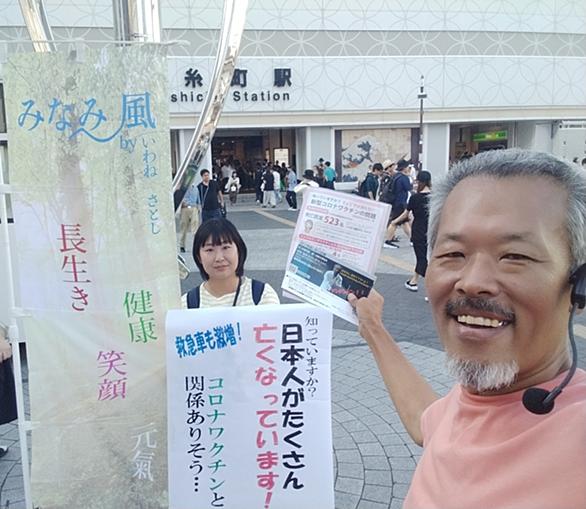 糸町駅
shich Station
みなみ風
by いわね さとし
長生き
健康
笑顔
元氣
新型コロナワクチンの問題
523名
救急車も激増!
知っていますか?
日本人がたくさん
亡くなっています!
コロナワクチンと
関係ありそう…